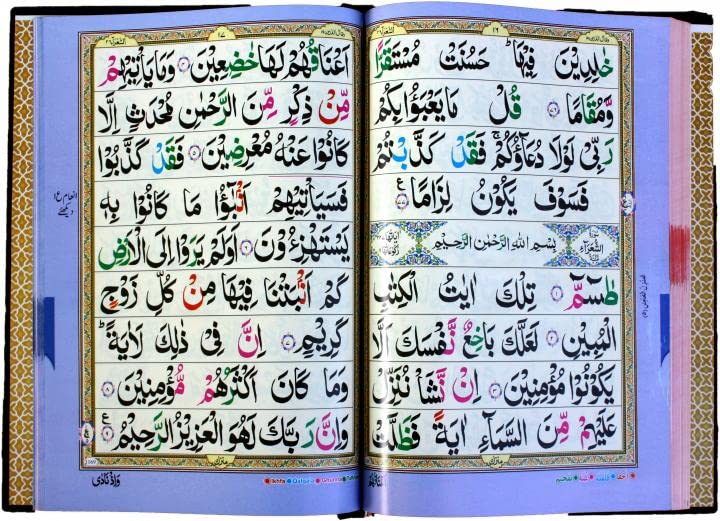 خٰلِدِيْنَ فِيْهَا ؕ حَسُنَتْ مُسْتَقَرًّا
وَّمُقَامًا ۝ قُلْ مَا يَعْبَؤُا بِكُمْ
رَبِّىْ لَوْلَا دُعَآؤُكُمْ ۚ فَقَدْ كَذَّبْتُمْ
فَسَوْفَ يَكُوْنُ لِزَامًا ۝
سُوْرَةُ الشُّعَرَآءِ بِسْمِ اللّٰهِ الرَّحْمٰنِ الرَّحِيْمِ
طٰسٓمّٓ ۝ تِلْكَ اٰيٰتُ الْكِتٰبِ
الْمُبِيْنِ ۝ لَعَلَّكَ بَاخِعٌ نَّفْسَكَ اَلَّا
يَكُوْنُوْا مُؤْمِنِيْنَ ۝ اِنْ نَّشَاْ نُنَزِّلْ
عَلَيْهِمْ مِّنَ السَّمَآءِ اٰيَةً فَظَلَّتْ
اَعْنَاقُهُمْ لَهَا خٰضِعِيْنَ ۝ وَمَا يَاْتِيْهِمْ
مِّنْ ذِكْرٍ مِّنَ الرَّحْمٰنِ مُحْدَثٍ اِلَّا
كَانُوْا عَنْهُ مُعْرِضِيْنَ ۝ فَقَدْ كَذَّبُوْا
فَسَيَاْتِيْهِمْ اَنْۢبٰٓؤُا مَا كَانُوْا بِهٖ
يَسْتَهْزِءُوْنَ ۝ اَوَلَمْ يَرَوْا اِلَى الْاَرْضِ
كَمْ اَنْۢبَتْنَا فِيْهَا مِنْ كُلِّ زَوْجٍ
كَرِيْمٍ ۝ اِنَّ فِىْ ذٰلِكَ لَاٰيَةً ؕ
وَمَا كَانَ اَكْثَرُهُمْ مُّؤْمِنِيْنَ ۝
وَاِنَّ رَبَّكَ لَهُوَ الْعَزِيْزُ الرَّحِيْمُ ۝
Ikhfa Qalqala Ghunna